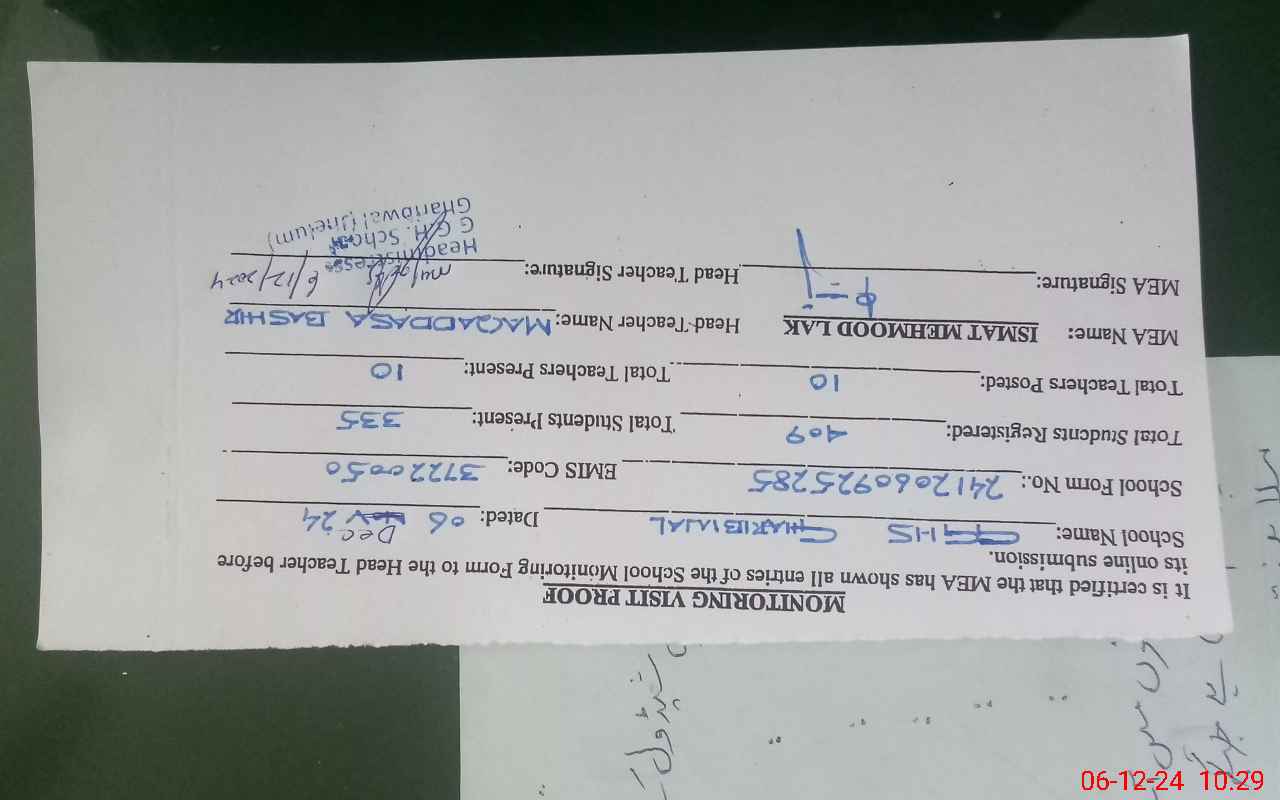 MONITORING VISIT PROOF
It is certified that the MEA has shown all entries of the School Monitoring Form to the Head Teacher before
its online submission.
School Name: GGHS GHARIBWAL Dated: 06 Nov Dec 24
School Form No.: 2412060925285 EMIS Code: 37220050
Total Students Registered: 409 Total Students Present: 335
Total Teachers Posted: 10 Total Teachers Present: 10
MEA Name: ISMAT MEHMOOD LAK Head Teacher Name: MAQADDASA BASHIR
MEA Signature: Head Teacher Signature: 6/12/2024
Headmistress
G.G.H. School
Gharibwal (Jhelum)
06-12-24 10:29